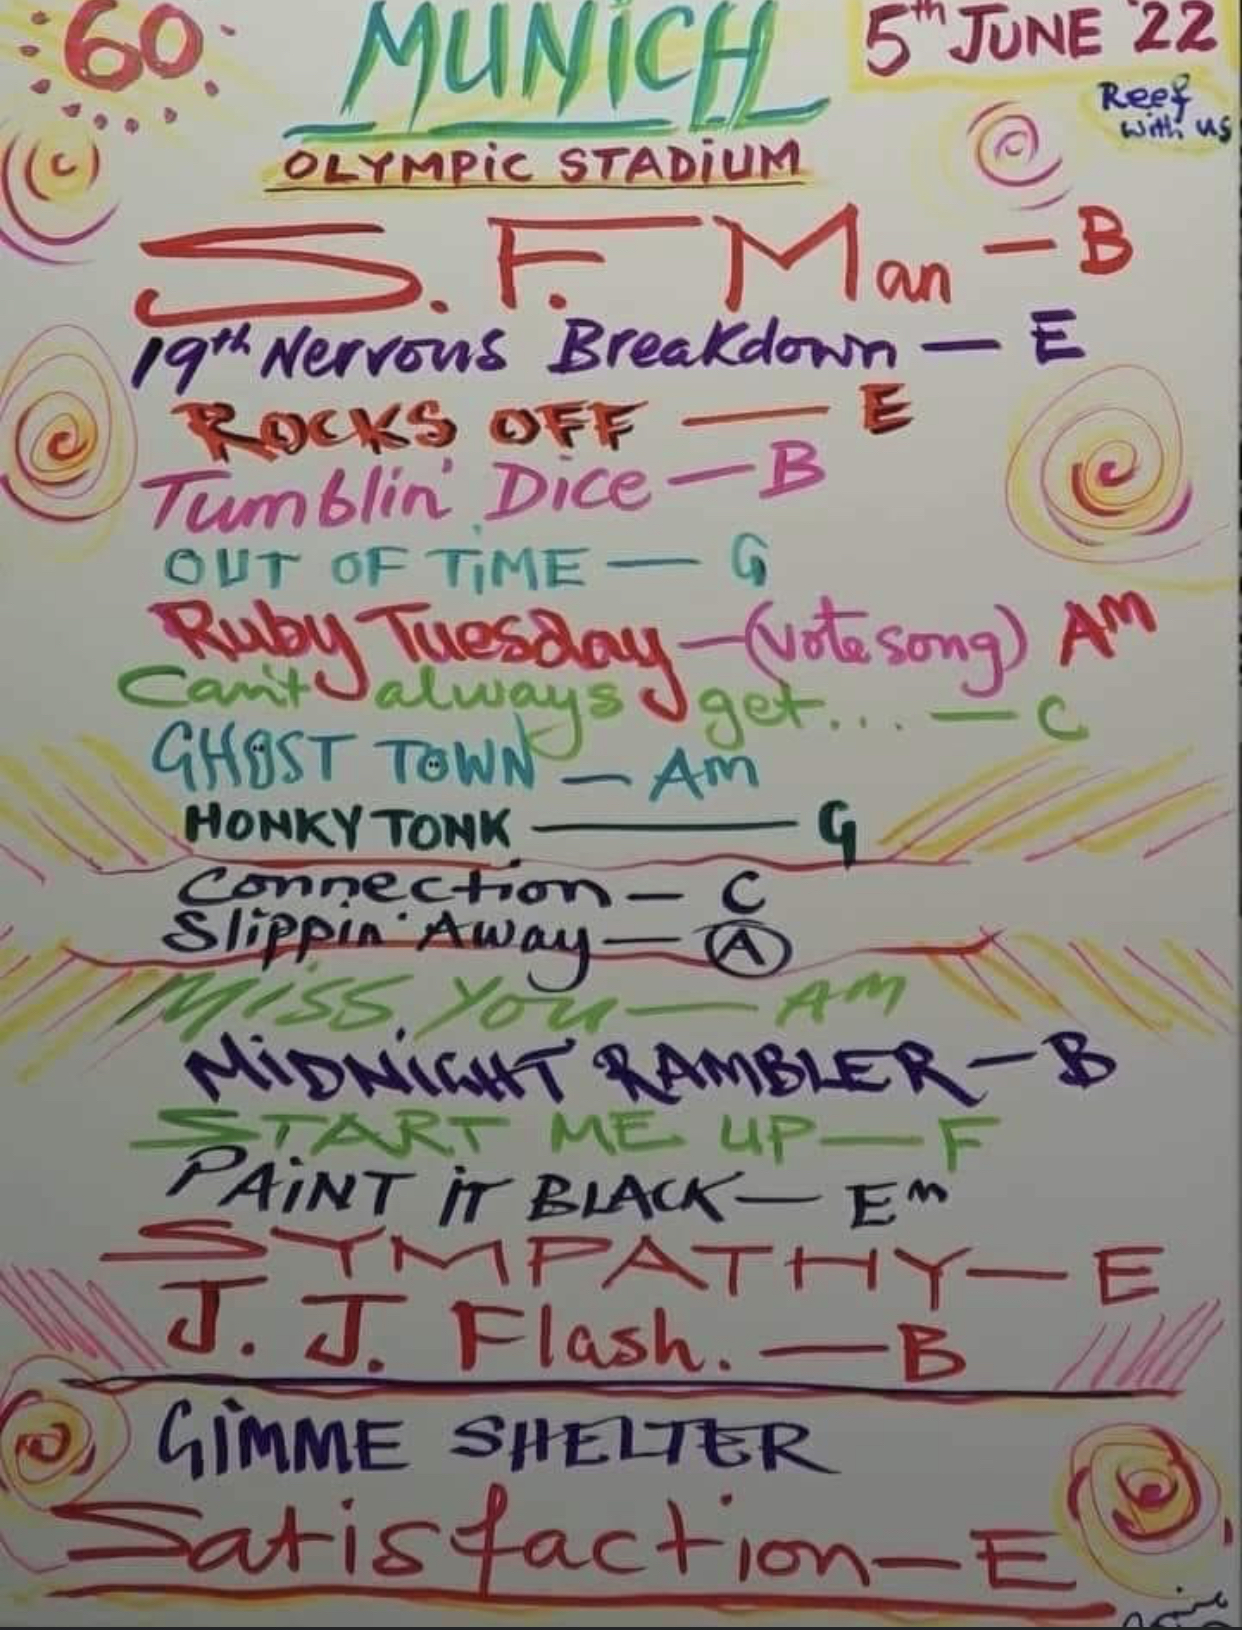 60
MUNiCH
5th JUNE '22
Reef
with us
OLYMPiC STADiUM
S. F. Man — B
19th Nervous Breakdown — E
ROCKS OFF — E
Tumblin' Dice — B
OUT OF TiME — G
Ruby Tuesday — (vote song) AM
Can't always get... — C
GHOST TOWN — Am
HONKY TONK — G
Connection — C
Slippin' Away — A
MiSS YOU — AM
MiDNiGHT RAMBLER — B
START ME UP — F
PAiNT iT BLACK — Em
SYMPATHY — E
J. J. Flash. — B
GiMME SHELTER
Satisfaction — E